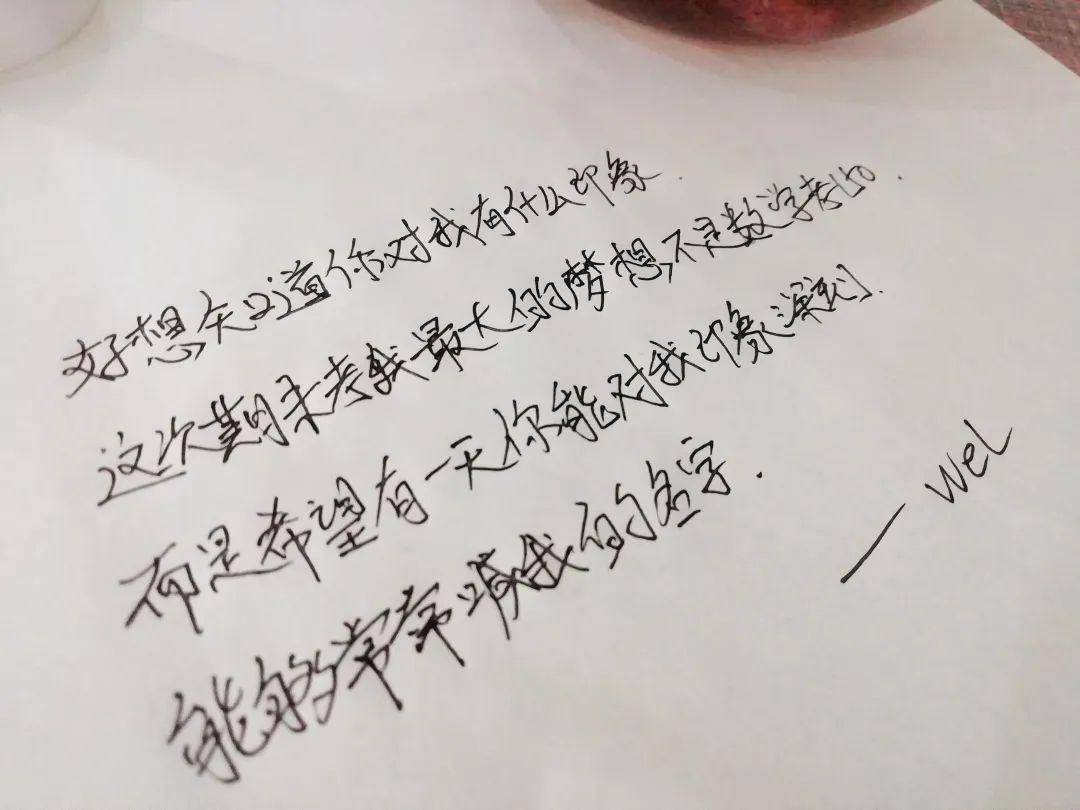 好想知道你对我有什么印象.
这次期末考我最大的梦想,不是数学考150.
而是希望有一天你能对我印象深刻.
能够常常喊我的名字.
— wel